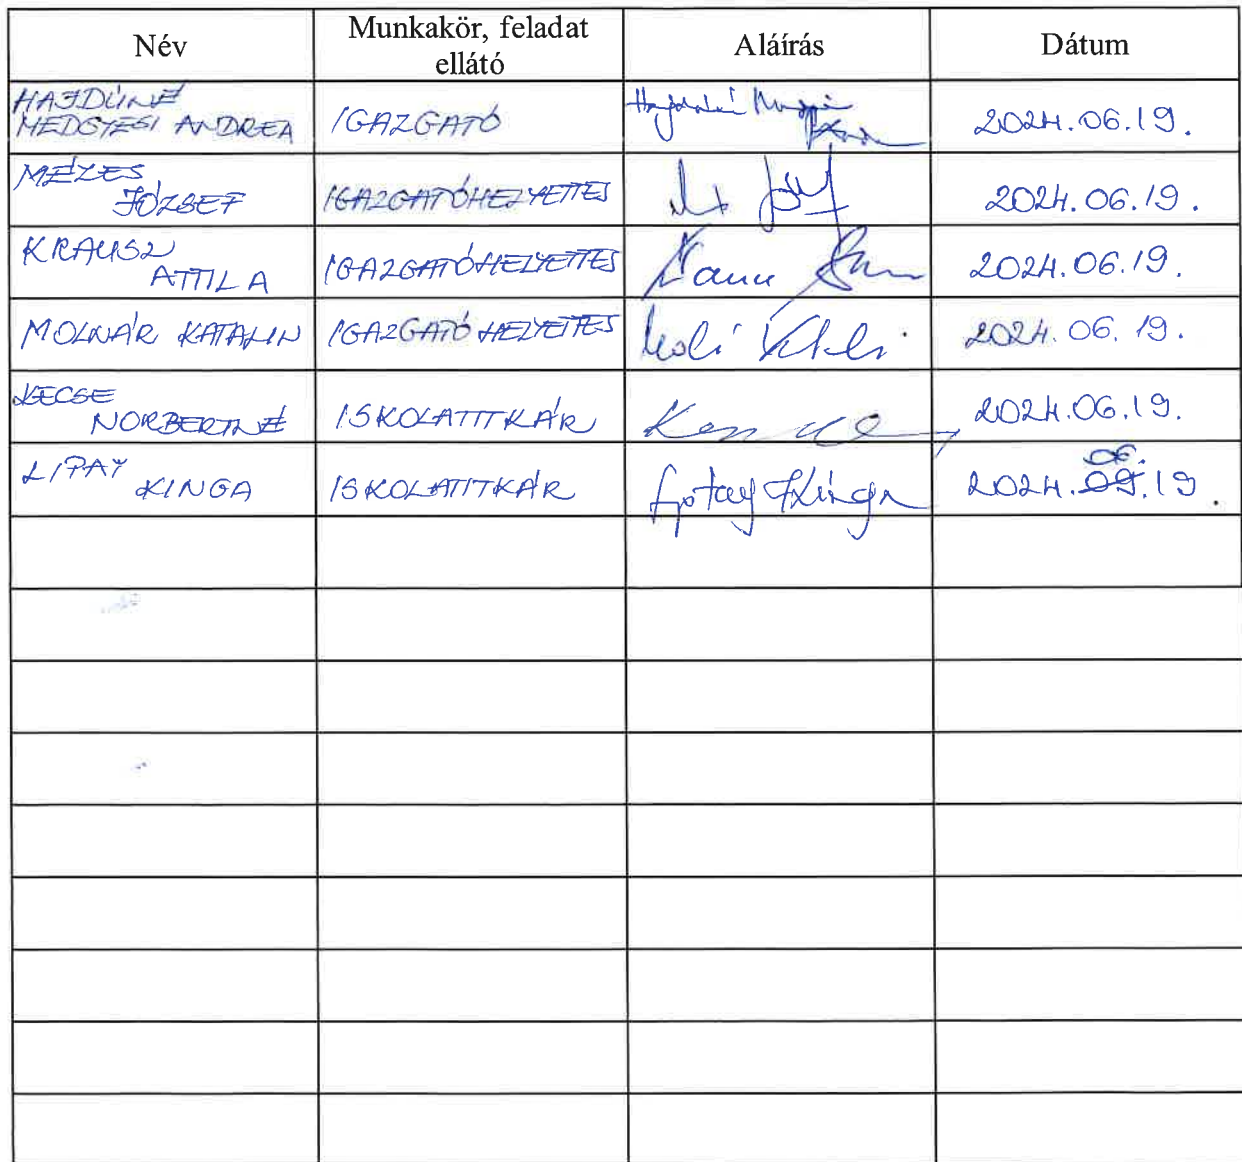 Név Munkakör, feladat ellátó Aláírás Dátum
HAJDÚNÉ
MEDGYESI ANDREA IGAZGATÓ 2024.06.19.
MÉZES
JÓZSEF IGAZGATÓHELYETTES 2024.06.19.
KRAUSZ
ATTILA IGAZGATÓHELYETTES 2024.06.19.
MOLNÁR KATALIN IGAZGATÓHELYETTES 2024.06.19.
KECSE
NORBERTNÉ ISKOLATITKÁR 2024.06.19.
LIPAY
KINGA ISKOLATITKÁR Kinga 2024.06.19.